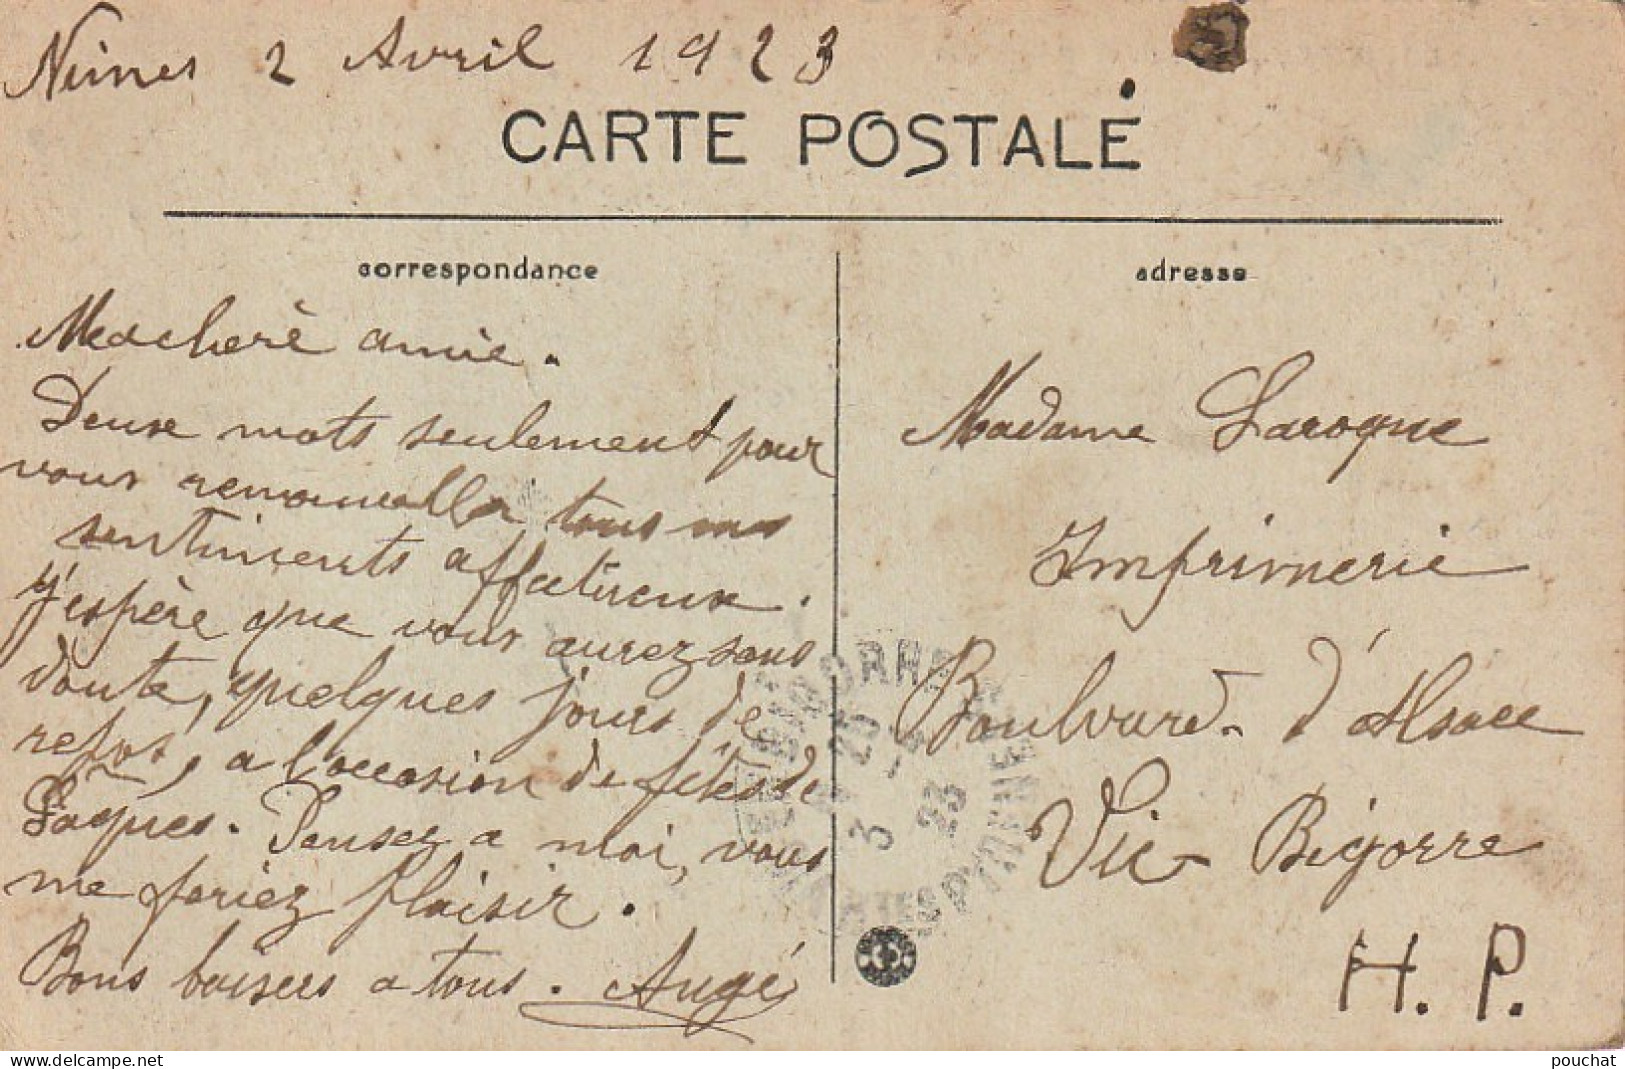 Nimes 2 Avril 1923
CARTE POSTALE
correspondance
Ma cheré amie.
Deux mots seulement pour
vous renouveller tous mes
sentiments affectueux.
J'espère que vous aurez sans
doute, quelques jours de
repos, a l'occasion de fêtes de
Pâques. Pensez a moi, vous
me feriez plaisir.
Bons baisers a tous. Augé
adresse
Madame Laroque
Imprimerie
Boulvard d'Alsace
Vic Bigorre
H. P.
BIGORRE
25
3 - 4
23
PYRENEES
pouchat
www.delcampe.net